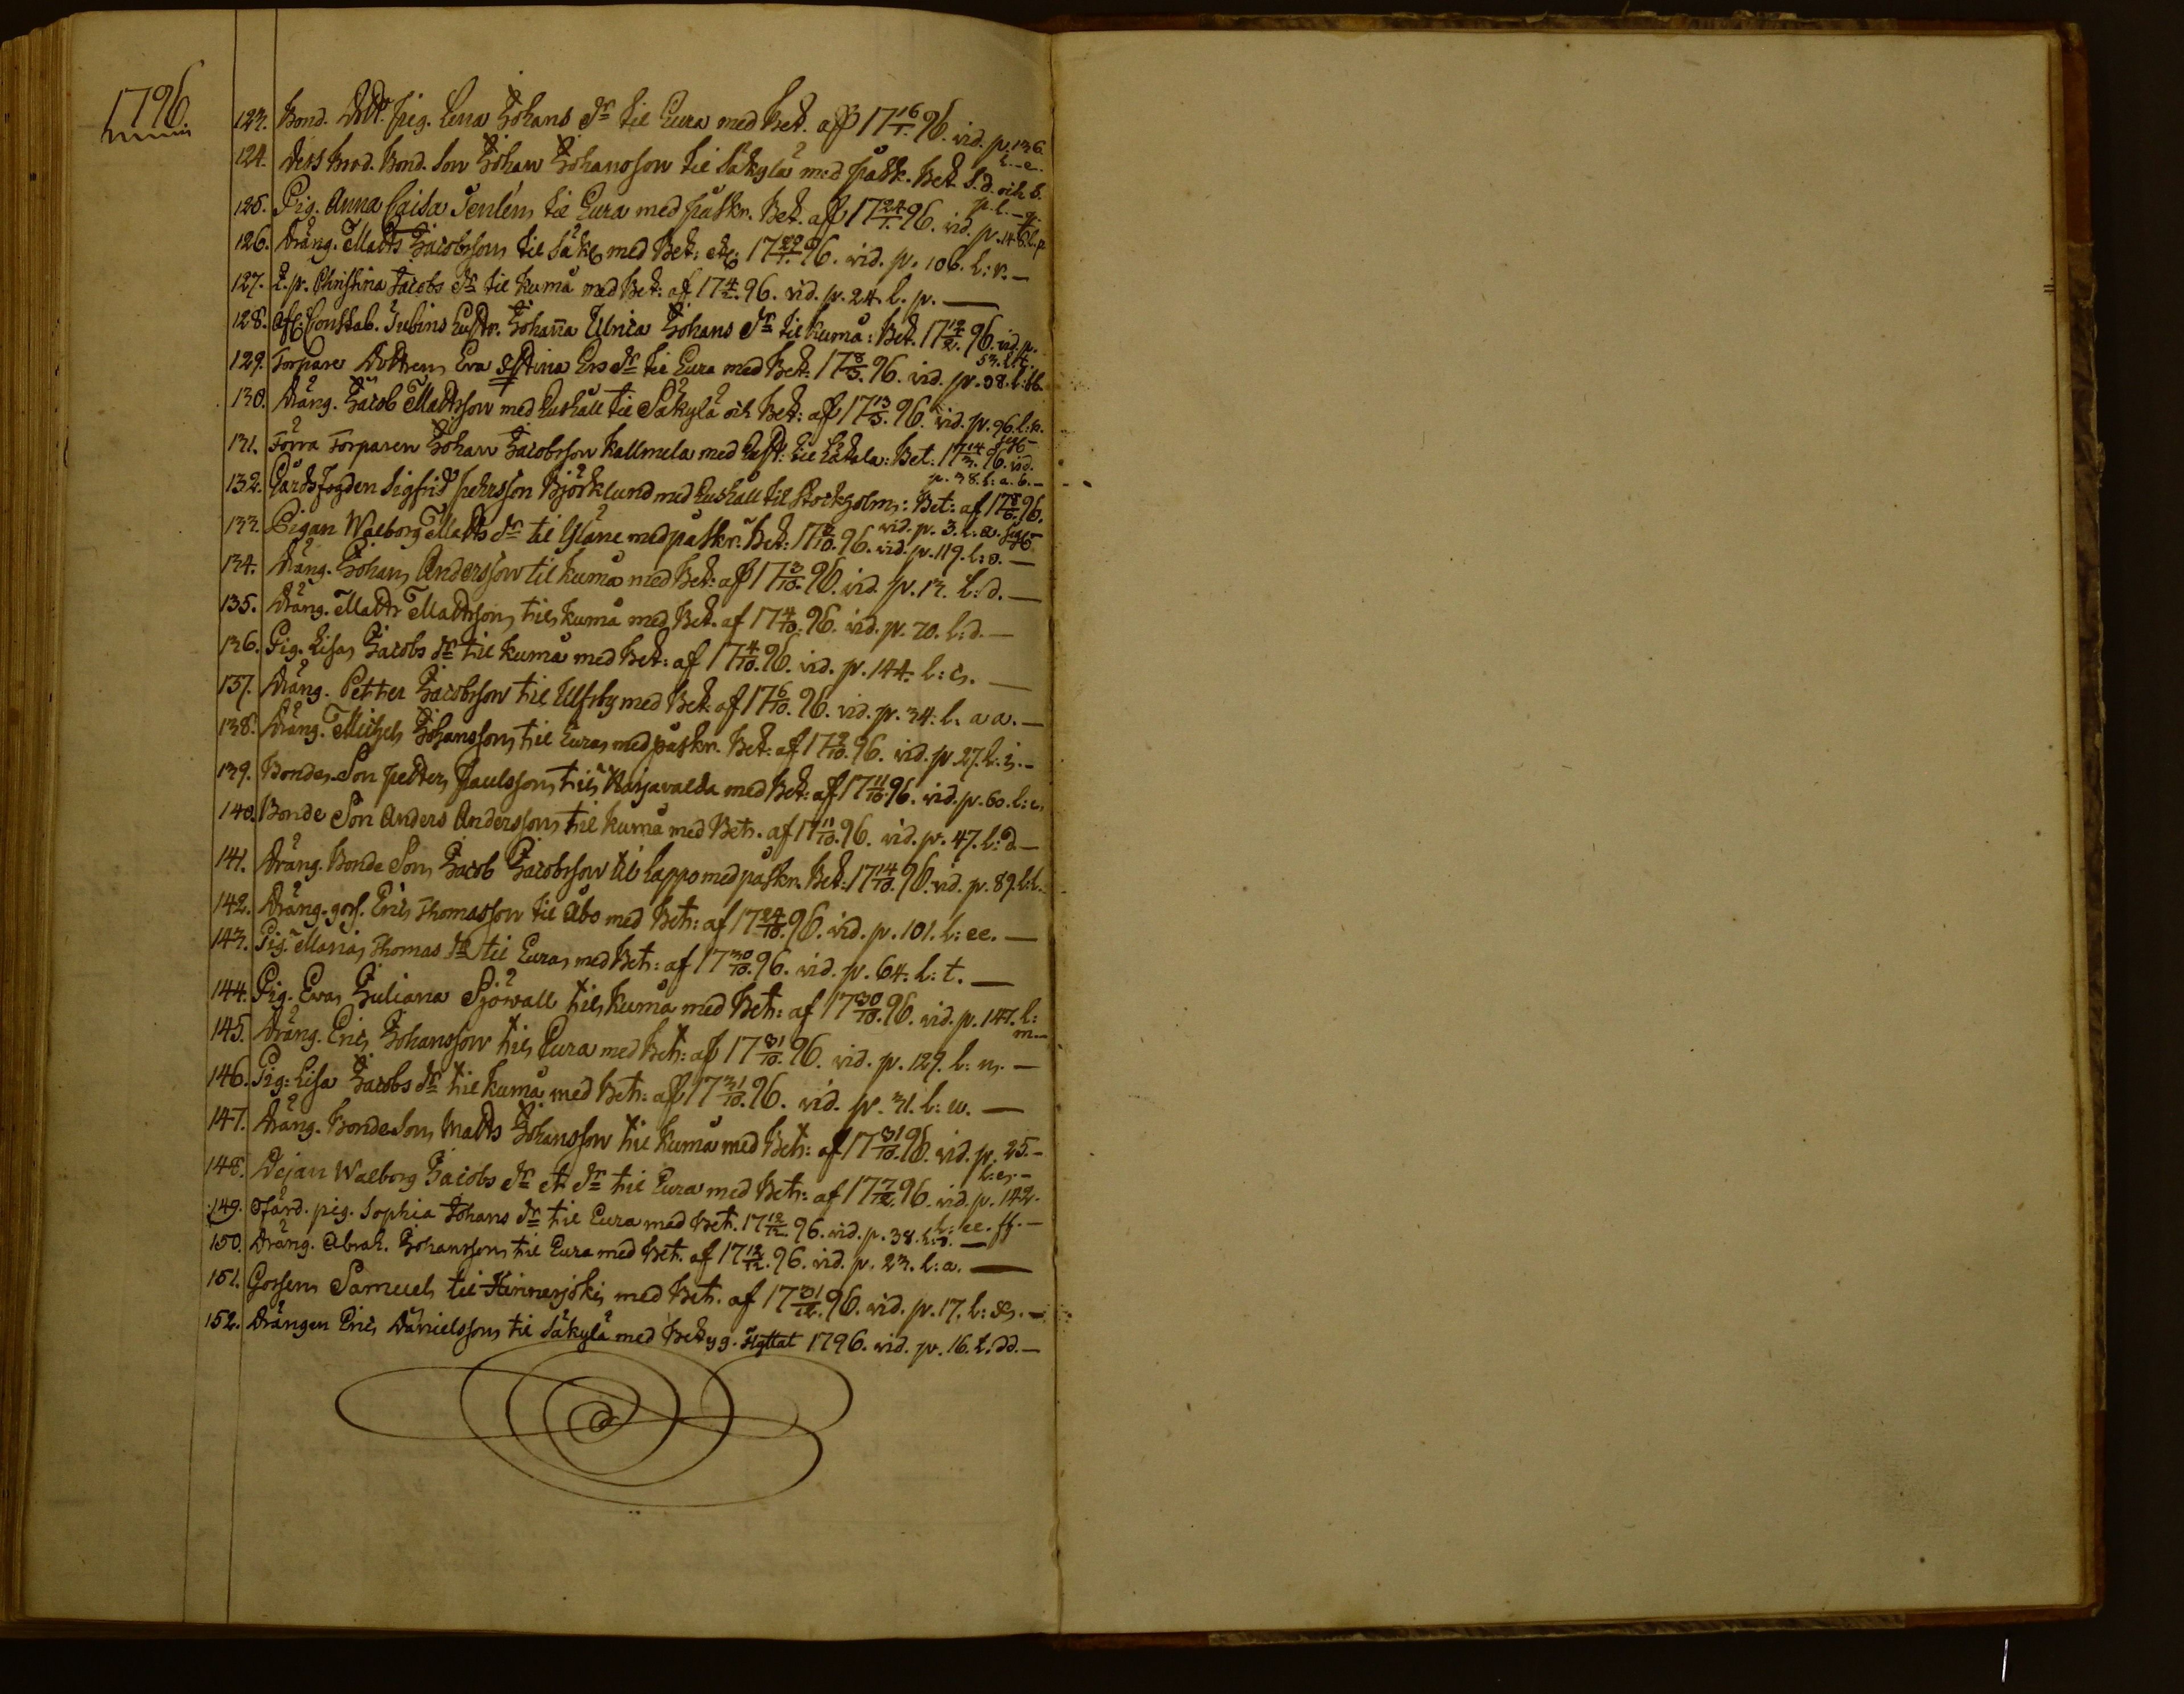 1796.
123. Bond. Dott. pig. Lena Johans dr til Eura med Bet. aff 17 16/1. 96. vid. p. 136.
l. - e.
124. Dess brod. Bond. Son Johan Johansson til Säkylä med påsk. Bet. S. d. och S.
p. l. - g.
125. Pig. Anna Caisa Senlén til Eura med påskr. Bet. aff 17 24/1. 96. vid. p. 148. l. p
126. Dräng. Matts Jacobsson til Säk. med Bet: 17 29/1. 96. vid. p. 106. l: r. —
127. E. p. Christina Jacobs dr til Kumå med Bet: af 17 4/2. 96. vid. p. 24. l. p. —
128. Afl. Constab. Jubins Hustr. Johanna Ulrica Johans dr til Kumå: Bet. 17 12/2. 96. vid. p.
53. l. t.
129. Torpare Dottren Eva Stina Ers dr til Eura med Bet: 17 8/3. 96. vid. p. 38. l: bb.
130. Dräng. Jacob Mattsson med Hushåll til Säkylä och Bet: aff 17 13/3. 96. vid. p. 96. l: n.
131. Förra Torparen Johan Jacobsson Kallmela med Hust: til Eckala: Bet: 17 14/3. 96. vid.
p. 38. l: a. b. —
132. Gårdsfogden Sigfrid Pehrsson Björklund med Hushåll til Stockholm: Bet: af 17 8/6. 96.
vid. p. 3. l. a. seqq
133. Pigan Walborg Matts dr til Yläne med påskr. Bet: 17 2/10. 96. vid. p. 119. l: o. —
134. Dräng. Johan Andersson til Kumå med Bet: aff 17 3/10. 96. vid. p. 13. l: d. —
135. Dräng. Matts Mattsson til Kumå med Bet. af 17 4/10. 96. vid. p. 70. l: d. —
136. Pig. Lisa Jacobs dr til Kumå med Bet: af 17 4/10. 96. vid. p. 144. l: c. —
137. Dräng. Petter Jacobsson til Ulfsby med Bet: af 17 6/10. 96. vid. p. 34. l. a a. —
138. Dräng. Michel Johansson til Eura med påskr. Bet: af 17 9/10. 96. vid. p. 27. l. i. —
139. Bonde Son Petter Paulsson til Harjavalda med Bet: aff 17 11/10. 96. vid. p. 60. l: c.
140. Bonde Son Anders Andersson til Kumå med Bet. af 17 11/10. 96. vid. p. 47. l: d. —
141. Dräng. Bonde Son Jacob Jacobsson til Lappo med påskr. Bet: 17 14/10. 96. vid. p. 89. l: l.
142. Dräng. gos. Eric Thomasson til Åbo med Bet: af 17 24/10. 96. vid. p. 101. l: ee. —
143. Pig. Maria Thomas dr til Eura med Bet: af 17 30/10. 96. vid. p. 64. l: t. —
144. Pig. Eva Juliana Sjöwall til Kumå med Bet: af 17 30/10. 96. vid. p. 147. l:
m. —
145. Dräng. Eric Johansson til Eura med Bet: af 17 31/10. 96. vid. p. 129. l: n. —
146. Pig: Lisa Jacobs dr til Kumå med Bet: aff 17 31/10. 96. vid. p. 31. l: u. —
147. Dräng. Bonde Son Matts Johansson til Kumå med Bet: af 17 31/10. 96. vid. p. 25. —
l: e. —
148. Dejan Walborg Jacobs dr et dr til Eura med Bet: af 17 7/12. 96. vid. p. 142.
l: ee. ff. —
149. Stärd. pig. Sophia Johans dr til Eura med Bet. 17 12/12. 96. vid. p. 38. l: —
150. Dräng. Abrah. Johansson til Eura med Bet. af 17 12/12. 96. vid. p. 23. l: a. —
151. Gossen Samuel til Hinnerjoki med Bet. af 17 31/12. 96. vid. p. 17. l: —
152. Drängen Eric Danielsson til Säkylä med Betyg. flyttat 1796. vid. p. 16. l. dd. —